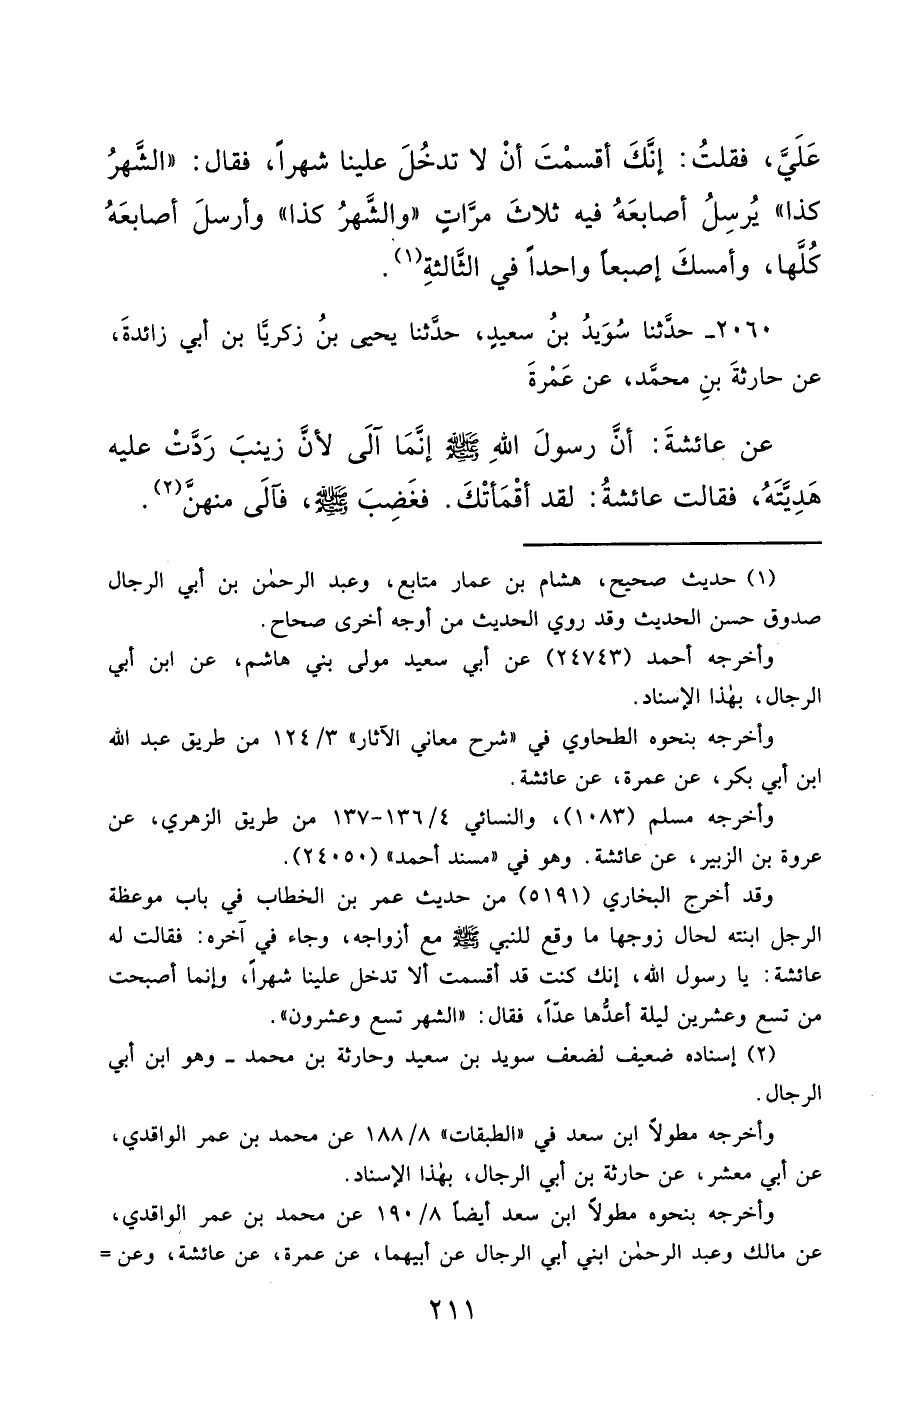 عَلَيَّ، فقلتُ: إنَّكَ أقسمْتَ أنْ لا تدخُلَ علينا شهراً، فقال: «الشَّهرُ
كذا» يُرسِلُ أصابعَهُ فيه ثلاثَ مرَّاتٍ «والشَّهرُ كذا» وأرسلَ أصابعَهُ
كُلَّها، وأمسكَ إصبعاً واحداً في الثَّالثةِ(١).
٢٠٦٠ـ حدَّثنا سُوَيدُ بنُ سعيدٍ، حدَّثنا يحيى بنُ زكريَّا بن أبي زائدةَ،
عن حارثةَ بنِ محمَّد، عن عَمْرةَ
عن عائشةَ: أنَّ رسولَ اللهِ ﷺ إنَّمَا آلَى لأنَّ زينبَ رَدَّتْ عليه
هَدِيَّتَهُ، فقالت عائشةُ: لقد أقْمَأتْكَ. فغَضِبَ ﷺ، فآلَى منهنَّ(٢).
(١) حديث صحيح، هشام بن عمار متابع، وعبد الرحمٰن بن أبي الرجال
صدوق حسن الحديث وقد روي الحديث من أوجه أخرى صحاح.
وأخرجه أحمد (٢٤٧٤٣) عن أبي سعيد مولى بني هاشم، عن ابن أبي
الرجال، بهٰذا الإسناد.
وأخرجه بنحوه الطحاوي في «شرح معاني الآثار» ١٢٤/٣ من طريق عبد الله
ابن أبي بكر، عن عمرة، عن عائشة.
وأخرجه مسلم (١٠٨٣)، والنسائي ١٣٦/٤-١٣٧ من طريق الزهري، عن
عروة بن الزبير، عن عائشة. وهو في «مسند أحمد» (٢٤٠٥٠).
وقد أخرج البخاري (٥١٩١) من حديث عمر بن الخطاب في باب موعظة
الرجل ابنته لحال زوجها ما وقع للنبي ﷺ مع أزواجه، وجاء في آخره: فقالت له
عائشة: يا رسول الله، إنك كنت قد أقسمت ألا تدخل علينا شهراً، وإنما أصبحت
من تسع وعشرين ليلة أعدُّها عدّاً، فقال: «الشهر تسع وعشرون».
(٢) إسناده ضعيف لضعف سويد بن سعيد وحارثة بن محمد ـ وهو ابن أبي
الرجال.
وأخرجه مطولاً ابن سعد في «الطبقات» ١٨٨/٨ عن محمد بن عمر الواقدي،
عن أبي معشر، عن حارثة بن أبي الرجال، بهٰذا الإسناد.
وأخرجه بنحوه مطولاً ابن سعد أيضاً ١٩٠/٨ عن محمد بن عمر الواقدي،
عن مالك وعبد الرحمٰن ابني أبي الرجال عن أبيهما، عن عمرة، عن عائشة، وعن =
٢١١